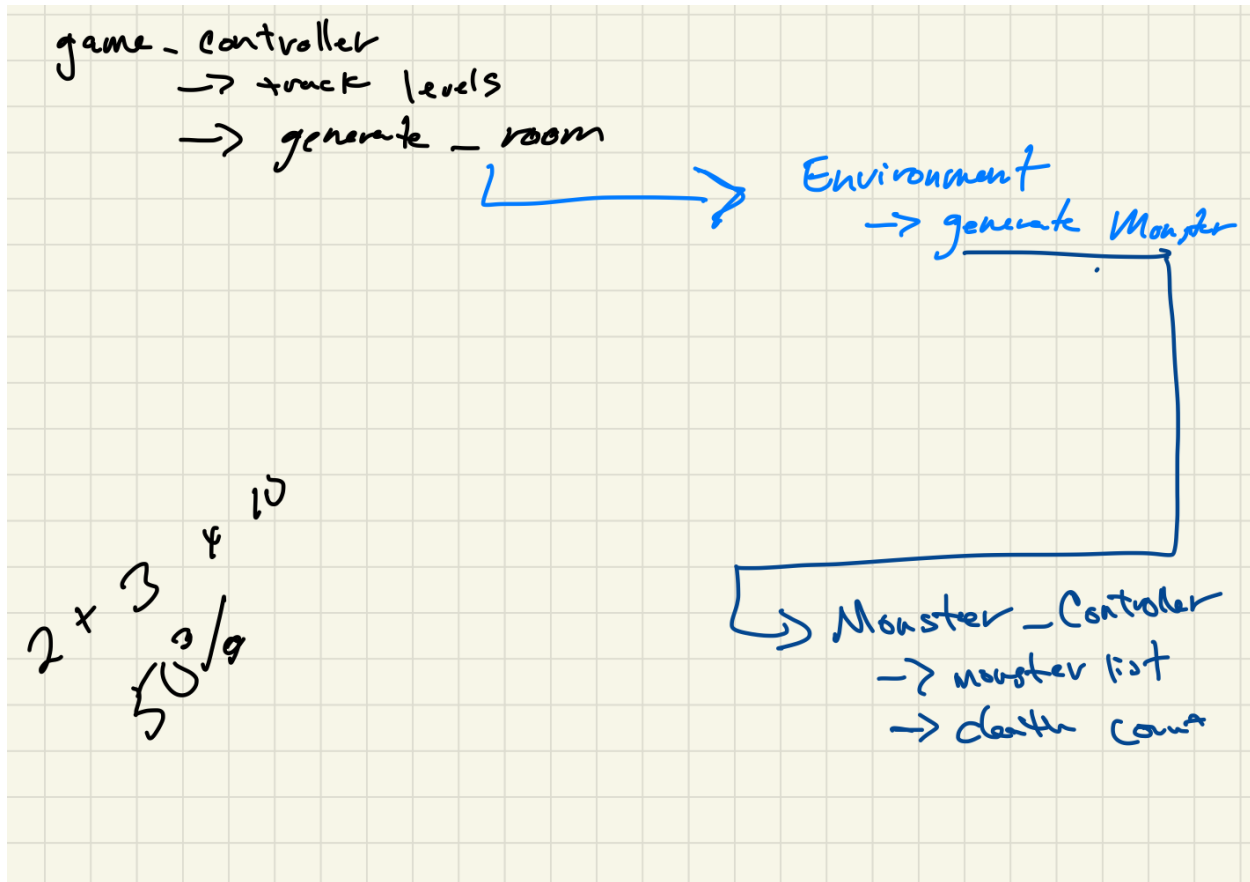 game_controller
-> track levels
-> generate_room
Environment
-> generate Monster
Monster_Controller
-> monster list
-> death count
2 + 3 4 10
50%